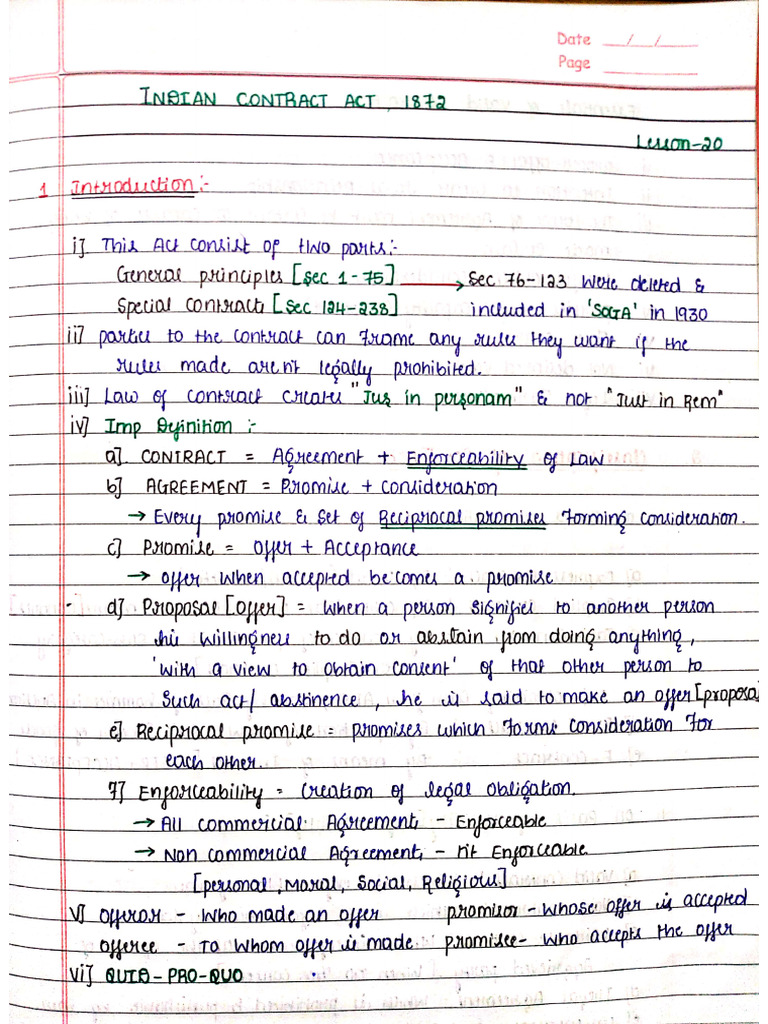 Date __/__/__
Page ______
INDIAN CONTRACT ACT, 1872
Lesson-20
1 Introduction:-
i] This Act consist of two parts:-
General principles [Sec 1-75] → Sec 76-123 were deleted &
Special contracts [Sec 124-238] included in 'SOGA' in 1930
ii] parties to the contract can frame any rules they want if the
rules made aren't legally prohibited.
iii] Law of contract creates "Jus in personam" & not "Just in Rem"
iv] Imp Definition :-
a] CONTRACT = Agreement + Enforceability of Law
b] AGREEMENT = Promise + consideration
→ Every promise & set of Reciprocal promises forming consideration.
c] Promise = Offer + Acceptance
→ offer when accepted becomes a promise
- d] Proposal [Offer] = when a person signifies to another person
his willingness to do or abstain from doing anything,
'with a view to obtain consent' of that other person to
such act/ abstinence, he is said to make an offer [proposal
e] Reciprocal promise = promises which forms consideration for
each other.
f] Enforceability = Creation of legal obligation.
→ All commercial Agreements - Enforceable
→ Non commercial Agreements - n't Enforceable
[personal, Moral, Social, Religious]
v] offeror - Who made an offer promisor - whose offer is accepted
offeree - to whom offer is made promisee - who accepts the offer
vi] QUID-PRO-QUO